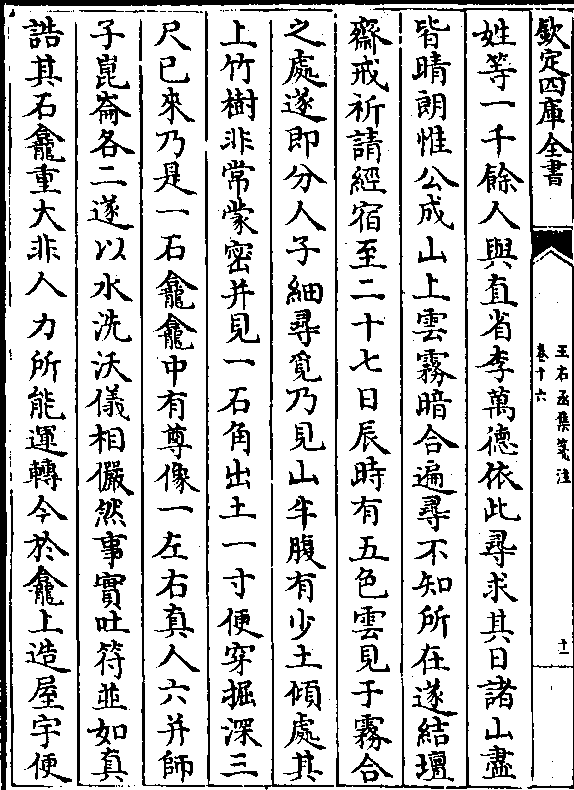 欽定四庫全書
王右丞集箋注
卷十六
十一
姓等一千餘人與直省李萬德依此尋求其日諸山盡
皆晴朗惟公成山上雲霧暗合遍尋不知所在遂結壇
齋戒祈請經宿至二十七日辰時有五色雲見于霧合
之處遂即分人子細尋覓乃見山半腹有少土傾處其
上竹樹非常蒙密并見一石角出土一寸便穿掘深三
尺已來乃是一石龕龕中有尊像一左右真人六并師
子崑崙各二遂以水洗沃儀相儼然事實吐符並如真
誥其石龕重大非人力所能運轉今於龕上造屋宇便